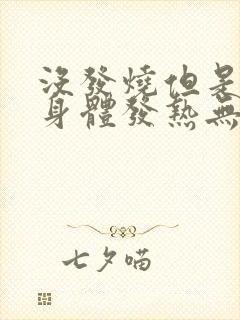 沒發燒但是
身體發熱無
七夕喵